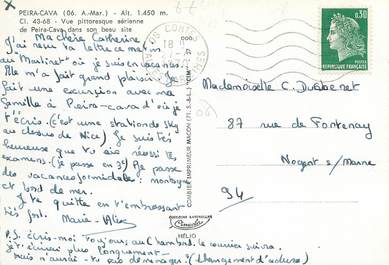 PEIRA-CAVA (06. A.-Mar.) - Alt. 1.450 m.
Cl. 43-68 - Vue pittoresque aérienne
de Peira-Cava dans son beau site
Ma chère Catherine
J'ai reçu ta lettre ce matin
au Martinet où je suis en vacances
Elle m'a fait grand plaisir. Je
fait une excursion avec ma
famille à Peira-cava d'où je
t'écris. (C'est une station de sky
au dessus de Nice) Je suis très
heureuse que tu aie réussi tes
examens. (Je passe en 3e) Je passe
des vacances formidables : montagne
et bord de mer.
Je te quitte en t'embrassant
très fort. Marie-Alix
P.S. écris-moi toujours au Chambord, le courrier suivra.
Je t'écrirai plus longuement
mais n'aurai-tu pas déménager? (Changement d'adresse)
COMBIER IMPRIMEUR MACON (71. S.-&-L.) "CIM"
HÉLIO
0,30
REPUBLIQUE FRANCAISE
POSTES
Mademoiselle C. Dugbenet
87 rue de Fontenay
Nogent s/ Marne
94